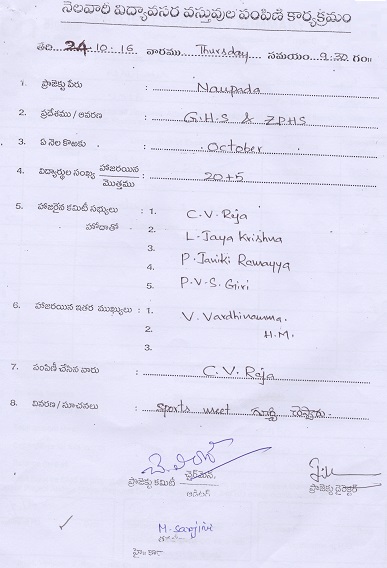 నెలవారీ విద్యావసర వస్తువుల పంపిణి కార్యక్రమం
తేది 24.10.15 వారము Thursday సమయం 9:30 గం॥
1. ప్రాజెక్టు పేరు : Naupada
2. ప్రదేశము / ఆవరణ : G.H.S & ZPHS
3. ఏ నెల కొఱకు : October
4. విద్యార్థుల సంఖ్య హాజరయిన / మొత్తము : 20+5
5. హాజరైన కమిటీ సభ్యులు : 1. C.V. Raja
హోదాతో 2. L. Jaya Krishna
3. P. Janiki Ramayya
4. P.V.S. Giri
5.
6. హాజరయిన ఇతర ముఖ్యులు : 1. V. Vardhinamma.
2. H.M.
3.
7. పంపిణీ చేసిన వారు : C.V. Raja
8. వివరణ / సూచనలు : sports meet గూర్చి చెప్పారు.
ప్రాజెక్టు కమిటీ ఛైర్మెన్.
ఆడిటర్
ప్రాజెక్టు డైరెక్టర్
M. sanjini